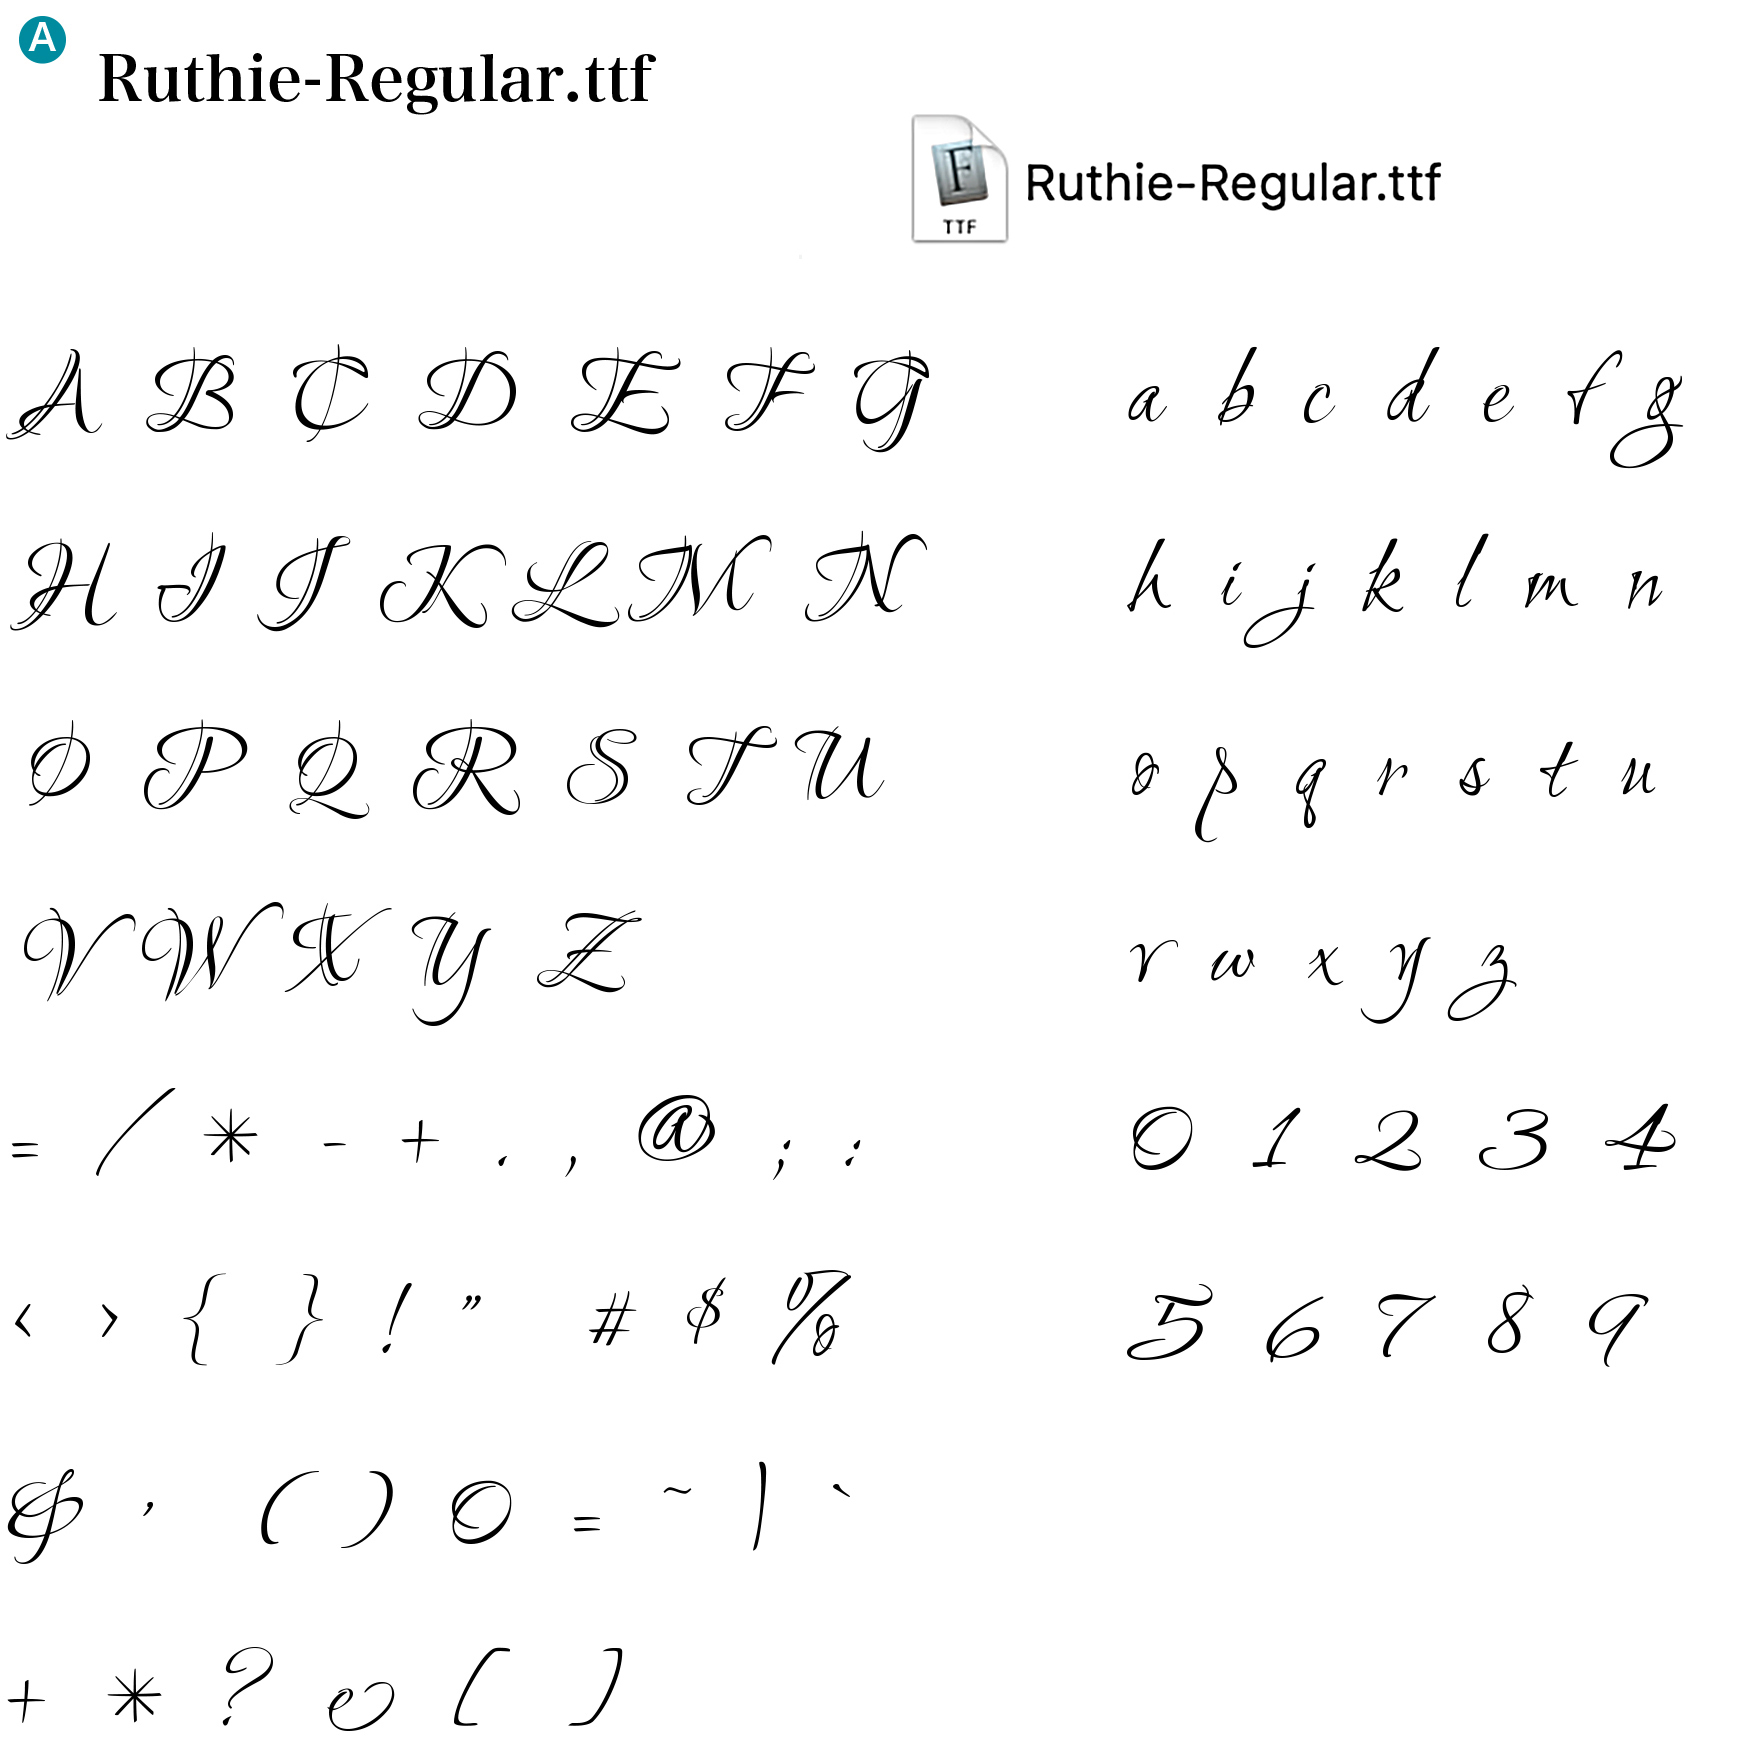 A
Ruthie-Regular.ttf
F
TTF
Ruthie-Regular.ttf
A B C D E F G
a b c d e f g
H I J K L M N
h i j k l m n
O P Q R S T U
o p q r s t u
V W X Y Z
v w x y z
= / * - + . , @ ; :
0 1 2 3 4
< > { } ! " # $ %
5 6 7 8 9
& ' ( ) 0 = ~ | `
+ * ? e [ ]